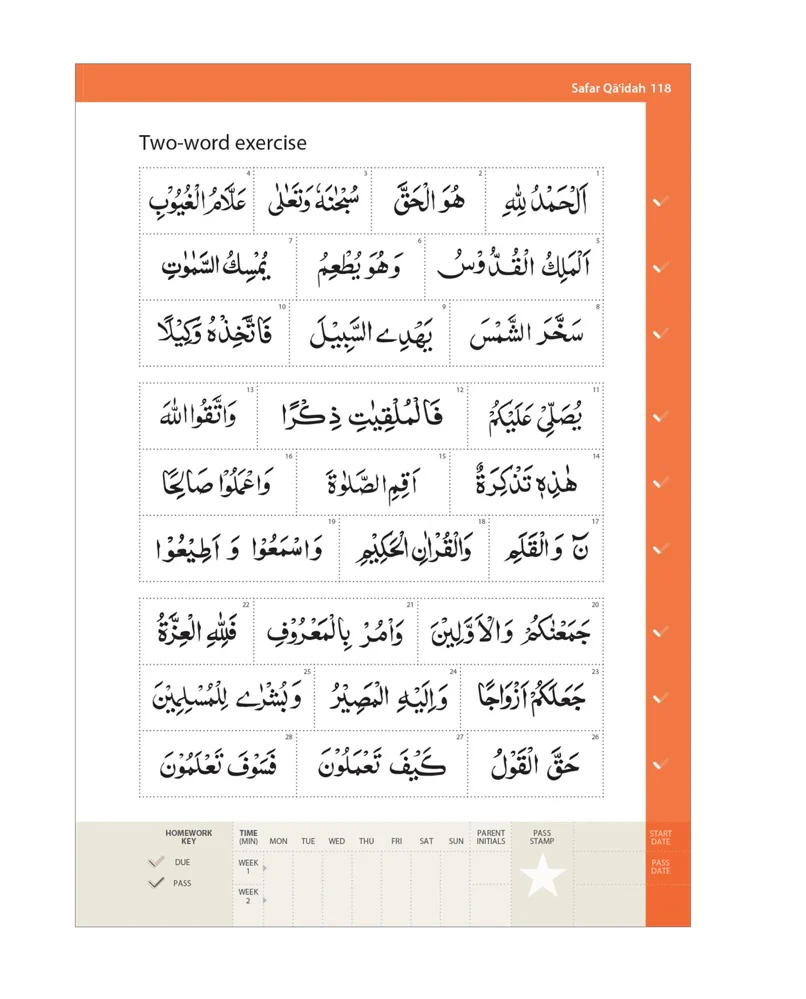 Safar Qā'idah 118
Two-word exercise
1 اَلْحَمْدُ لِلّٰهِ 2 هُوَ الْحَقَّ 3 سُبْحٰنَهٗ وَتَعَالٰى 4 عَلَّامُ الْغُيُوْبِ
5 اَلْمَلِكُ الْقُدُّوْسُ 6 وَهُوَ يُطْعِمُ 7 يُمْسِكُ السَّمٰوٰتِ
8 سَخَّرَ الشَّمْسَ 9 يَهْدِے السَّبِيْلَ 10 فَاتَّخِذْهُ وَكِيْلًا
11 يُصَلِّيْ عَلَيْكُمْ 12 فَالْمُلْقِيٰتِ ذِكْرًا 13 وَاتَّقُوا اللّٰهَ
14 هٰذِهٖ تَذْكِرَةٌ 15 اَقِمِ الصَّلٰوةَ 16 وَاعْمَلُوْا صَالِحًا
17 نٓ وَالْقَلَمِ 18 وَالْقُرْاٰنِ الْحَكِيْمِ 19 وَاسْمَعُوْا وَ اَطِيْعُوْا
20 جَمَعْنٰكُمْ وَالْاَوَّلِيْنَ 21 وَاْمُرْ بِالْمَعْرُوْفِ 22 فَلِلّٰهِ الْعِزَّةُ
23 جَعَلَكُمْ اَزْوَاجًا 24 وَاِلَيْهِ الْمَصِيْرُ 25 وَبُشْرٰے لِلْمُسْلِمِيْنَ
26 حَقَّ الْقَوْلُ 27 كَيْفَ تَعْمَلُوْنَ 28 فَسَوْفَ تَعْلَمُوْنَ
HOMEWORK KEY
DUE
PASS
TIME (MIN) MON TUE WED THU FRI SAT SUN PARENT INITIALS PASS STAMP START DATE
WEEK 1
PASS DATE
WEEK 2